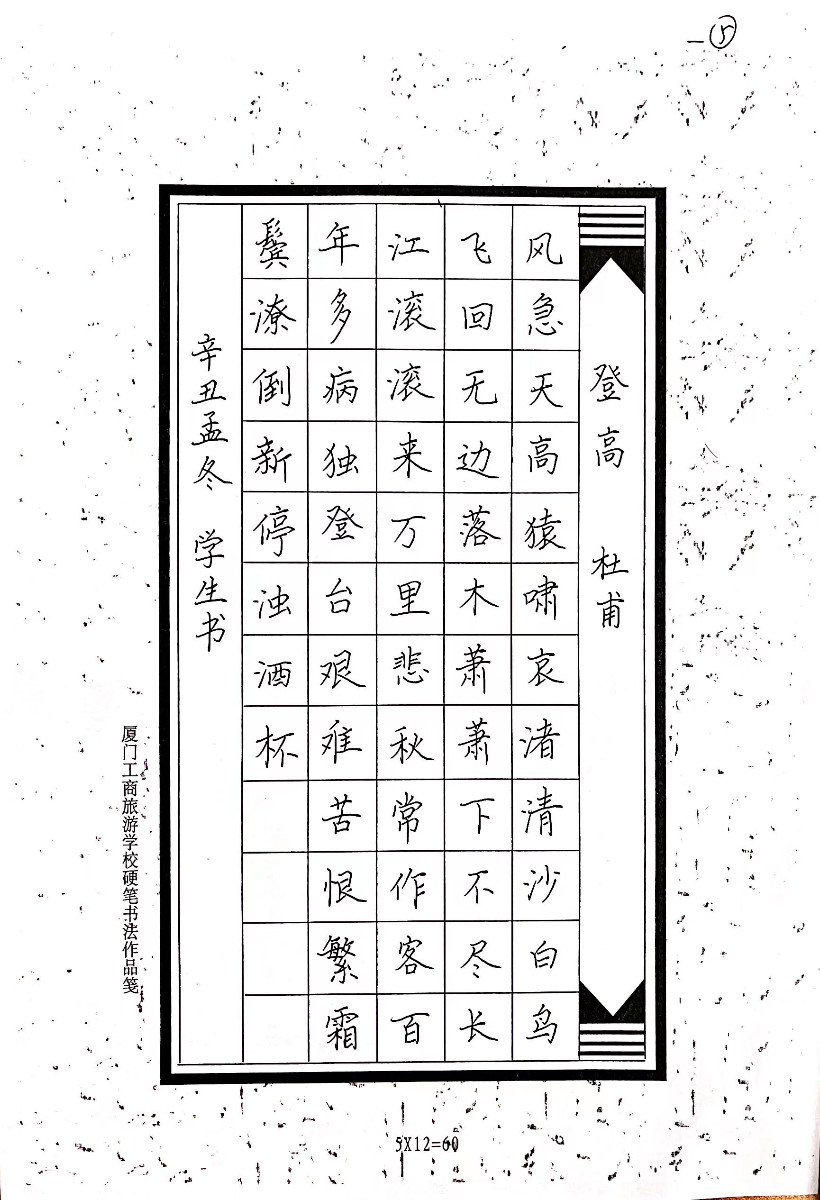 一⑤
登高 杜甫
风急天高猿啸哀渚清沙白鸟
飞回无边落木萧萧下不尽长
江滚滚来万里悲秋常作客百
年多病独登台艰难苦恨繁霜
鬓潦倒新停浊酒杯
辛丑孟冬 学生书
厦门工商旅游学校硬笔书法作品笺
5X12=60